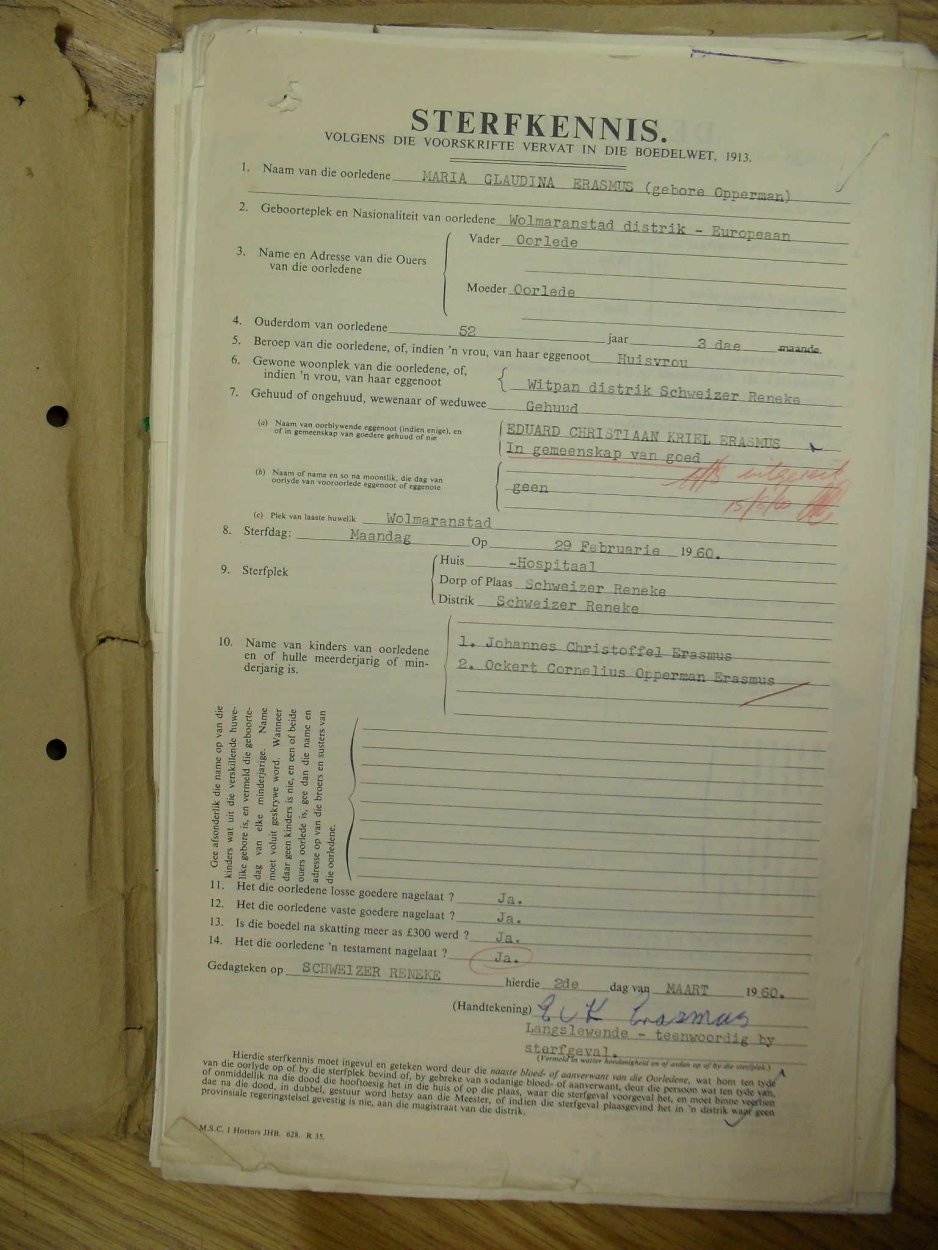 STERFKENNIS.
VOLGENS DIE VOORSKRIFTE VERVAT IN DIE BOEDELWET, 1913.
1. Naam van die oorledene MARIA GLAUDINA ERASMUS (gebore Opperman)
2. Geboorteplek en Nasionaliteit van oorledene Wolmaranstad distrik - Europeaan
3. Name en Adresse van die Ouers van die oorledene
Vader Oorlede
Moeder Oorlede
4. Ouderdom van oorledene 52 jaar 3 dae maande.
5. Beroep van die oorledene, of, indien 'n vrou, van haar eggenoot Huisvrou
6. Gewone woonplek van die oorledene, of, indien 'n vrou, van haar eggenoot
Witpan distrik Schweizer Reneke
7. Gehuud of ongehuud, wewenaar of weduwee Gehuud
(a) Naam van oorblywende eggenoot (indien enige), en of in gemeenskap van goedere gehuud of nie
EDUARD CHRISTIAAN KRIEL ERASMUS
In gemeenskap van goed
(b) Naam of name en so na moontlik, die dag van oorlyde van vooroorlede eggenoot of eggenote
geen
15/6/60
(c) Plek van laaste huwelik Wolmaranstad
8. Sterfdag: Maandag Op 29 Februarie 1960.
9. Sterfplek
Huis -Hospitaal
Dorp of Plaas Schweizer Reneke
Distrik Schweizer Reneke
10. Name van kinders van oorledene en of hulle meerderjarig of minderjarig is.
1. Johannes Christoffel Erasmus
2. Ockert Cornelius Opperman Erasmus
Gee afsonderlik die name op van die
kinders wat uit die verskillende huwe-
like gebore is, en vermeld die geboorte-
dag van elke minderjarige. Name
moet voluit geskrywe word. Wanneer
daar geen kinders is nie, en een of beide
ouers oorlede is, gee dan die name en
adresse op van die broers en susters van
die oorledene.
11. Het die oorledene losse goedere nagelaat ? Ja.
12. Het die oorledene vaste goedere nagelaat ? Ja.
13. Is die boedel na skatting meer as £300 werd ? Ja.
14. Het die oorledene 'n testament nagelaat ? Ja.
Gedagteken op SCHWEIZER RENEKE hierdie 2de dag van MAART 1960.
(Handtekening) E C K Erasmus
Langslewende - teenwoordig by
sterfgeval.
(Vermeld in watter hoedanigheid en of asdan op of by die sterfplek.)
Hierdie sterfkennis moet ingevul en geteken word deur die naaste bloed- of aanverwant van die Oorledene, wat hom ten tyde
van die oorlyde op of by die sterfplek bevind of, by gebreke van sodanige bloed- of aanverwant, deur die persoon wat ten tyde van,
of onmiddellik na die dood die hooftoesig het in die huis of op die plaas, waar die sterfgeval voorgeval het, en moet binne veertien
dae na die dood, in dubbel, gestuur word hetsy aan die Meester, of indien die sterfgeval plaasgevind het in 'n distrik waar geen
provinsiale regeringstelsel gevestig is nie, aan die magistraat van die distrik.
M.S.C. 1 Hortors JHB. 628. R 35.